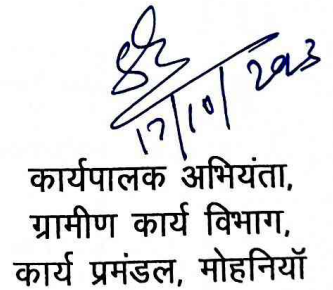 17/10/2023
कार्यपालक अभियंता,
ग्रामीण कार्य विभाग,
कार्य प्रमंडल, मोहनियॉ